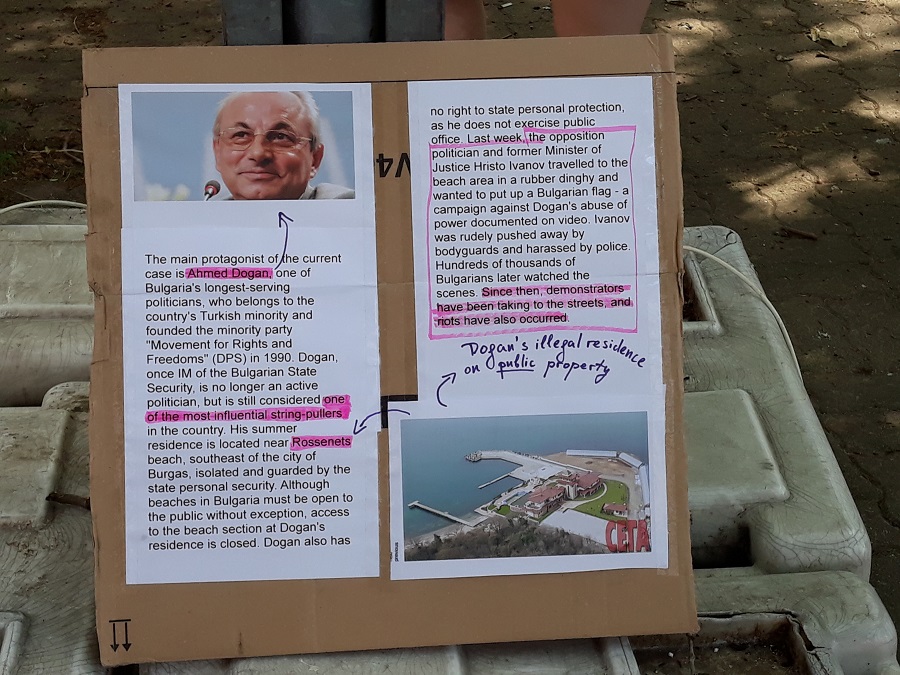 The main protagonist of the current
case is Ahmed Dogan, one of
Bulgaria's longest-serving
politicians, who belongs to the
country's Turkish minority and
founded the minority party
"Movement for Rights and
Freedoms" (DPS) in 1990. Dogan,
once IM of the Bulgarian State
Security, is no longer an active
politician, but is still considered one
of the most influential string-pullers
in the country. His summer
residence is located near Rossenets
beach, southeast of the city of
Burgas, isolated and guarded by the
state personal security. Although
beaches in Bulgaria must be open to
the public without exception, access
to the beach section at Dogan's
residence is closed. Dogan also has
no right to state personal protection,
as he does not exercise public
office. Last week, the opposition
politician and former Minister of
Justice Hristo Ivanov travelled to the
beach area in a rubber dinghy and
wanted to put up a Bulgarian flag - a
campaign against Dogan's abuse of
power documented on video. Ivanov
was rudely pushed away by
bodyguards and harassed by police.
Hundreds of thousands of
Bulgarians later watched the
scenes. Since then, demonstrators
have been taking to the streets, and
riots have also occurred.
Dogan's illegal residence
on public property
СЕГА